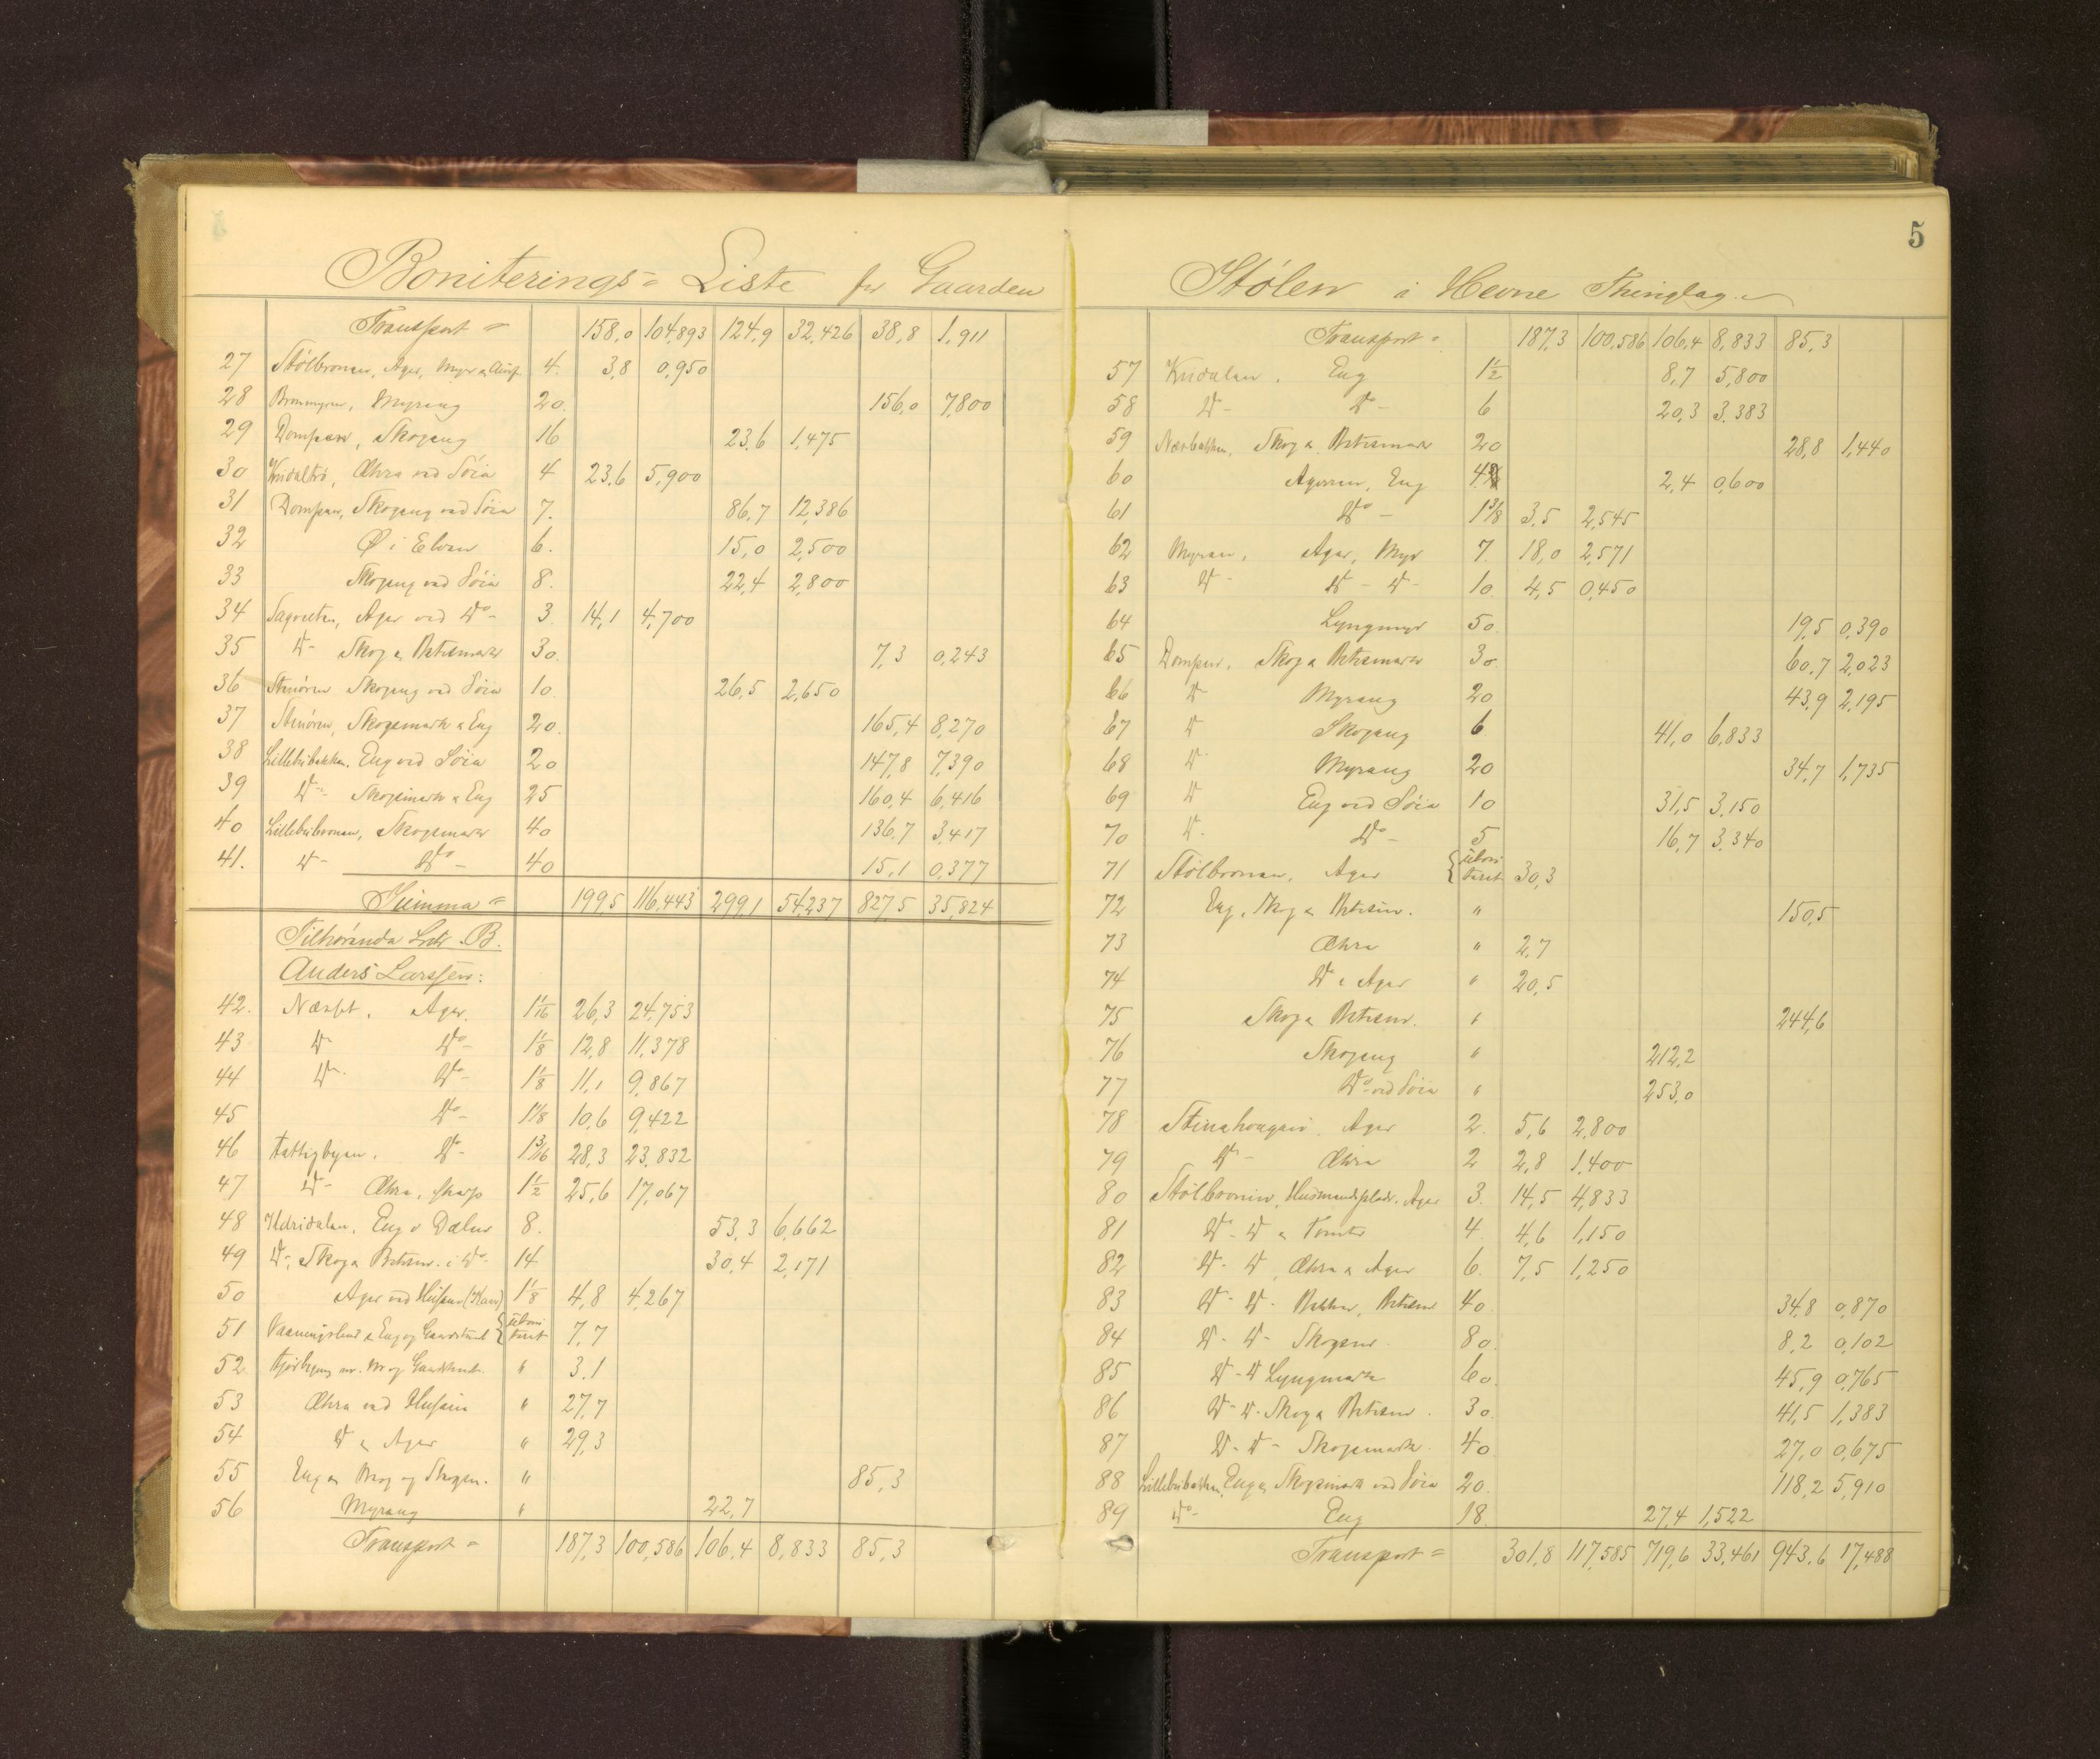 5
Boniterings= Liste for Gaarden
Transport = 158,0 104,893 124,9 32,426 38,8 1,911
27 Stølbronen, Ager, Myr 4. 3,8 0,950
28 Myreng 20. 156,0 7,800
29 Dompen, Skogeng 16 23,6 1,475
30 Æhra ved Söia 4 23,6 5,900
31 Dompen, Skogeng ved Söia 7. 86,7 12,386
32 Ø i Elven 6. 15,0 2,500
33 Skogeng ved Söia 8. 22,4 2,800
34 Ager ved Do- 3. 14,1 4,700
35 Do- Skog & 30. 7,3 0,243
36 Skogeng ved Söia 10. 26,5 2,650
37 Skogsmark & Eng 20. 165,4 8,270
38 Lillebubakken, Eng ved Söia 20 147,8 7,390
39 Do- Skogsmark & Eng 25 160,4 6,416
40 Lillebubronen, Skogsmark 40 136,7 3,417
41. Do- Do- 40 15,1 0,377
Summa = 199,5 116,443 299,1 54,237 827,5 35,824
Tilhørende Litr. B.
Anders Larssen:
42. Næsset, Ager. 1 1/16 26,3 24,753
43 Do Do- 1 1/8 12,8 11,378
44 Do- Do- 1 1/8 11,1 9,867
45 Do- 1 1/8 10,6 9,422
46 Do- 1 3/16 28,3 23,832
47 Do- Æhra, skarp 1 1/2 25,6 17,067
48 Eng 8. 53,3 6,662
49 Do-, Skog & i Do- 14 30,4 2,171
50 Ager ved Husene 1 1/8 4,8 4,267
51 { uboni teret 7,7
52 " 3,1
53 Æhra ved Husene " 27,7
54 Do & Ager " 29,3
55 Eng " 85,3
56 Myreng " 22,7
Transport = 187,3 100,586 106,4 8,833 85,3
Stølen i Hevne Thinglag.
Transport = 187,3 100,586 106,4 8,833 85,3
57 Eng 1 1/2 8,7 5,800
58 Do- Do- 6 20,3 3,383
59 Skog & 20 28,8 1,440
60 Eng 4 2,4 0,600
61 Do- 1 3/8 3,5 2,545
62 Myran, Ager, Myr 7. 18,0 2,571
63 Do- Do- Do- 10 4,5 0,450
64 Lyngmyr 50 19,5 0,390
65 Dompen, Skog & 30. 60,7 2,023
66 Do Myreng 20 43,9 2,195
67 Do Skogeng 6 41,0 6,833
68 Do Myreng 20 34,7 1,735
69 Do Eng ved Söia 10 31,5 3,150
70 Do. Do- 5 16,7 3,340
71 Stølbronen, Ager { uboni teret 30,3
72 Eng, Skog & " 150,5
73 Æhra " 2,7
74 Do & Ager " 20,5
75 Skog & " 244,6
76 Skogeng " 212,2
77 Do ved Söia " 253,0
78 Ager 2. 5,6 2,800
79 Do- Æhra 2 2,8 1,400
80 Stølbronen, Husmandsplads, Ager 3. 14,5 4,833
81 Do- Do & Tomter 4 4,6 1,150
82 Do- Do, Æhra & Ager 6. 7,5 1,250
83 Do- Do- 40. 34,8 0,870
84 Do- Do- Skogsm. 80. 8,2 0,102
85 Do- Do Lyngmark 60. 45,9 0,765
86 Do- Do- Skog & 30. 41,5 1,383
87 Do- Do- Skogsmark. 40 27,0 0,675
88 Lillebubakken, Eng & Skogsmark ved Söia 20. 118,2 5,910
89 Do- Eng 18. 27,4 1,522
Transport = 301,8 117,585 719,6 33,461 943,6 17,488